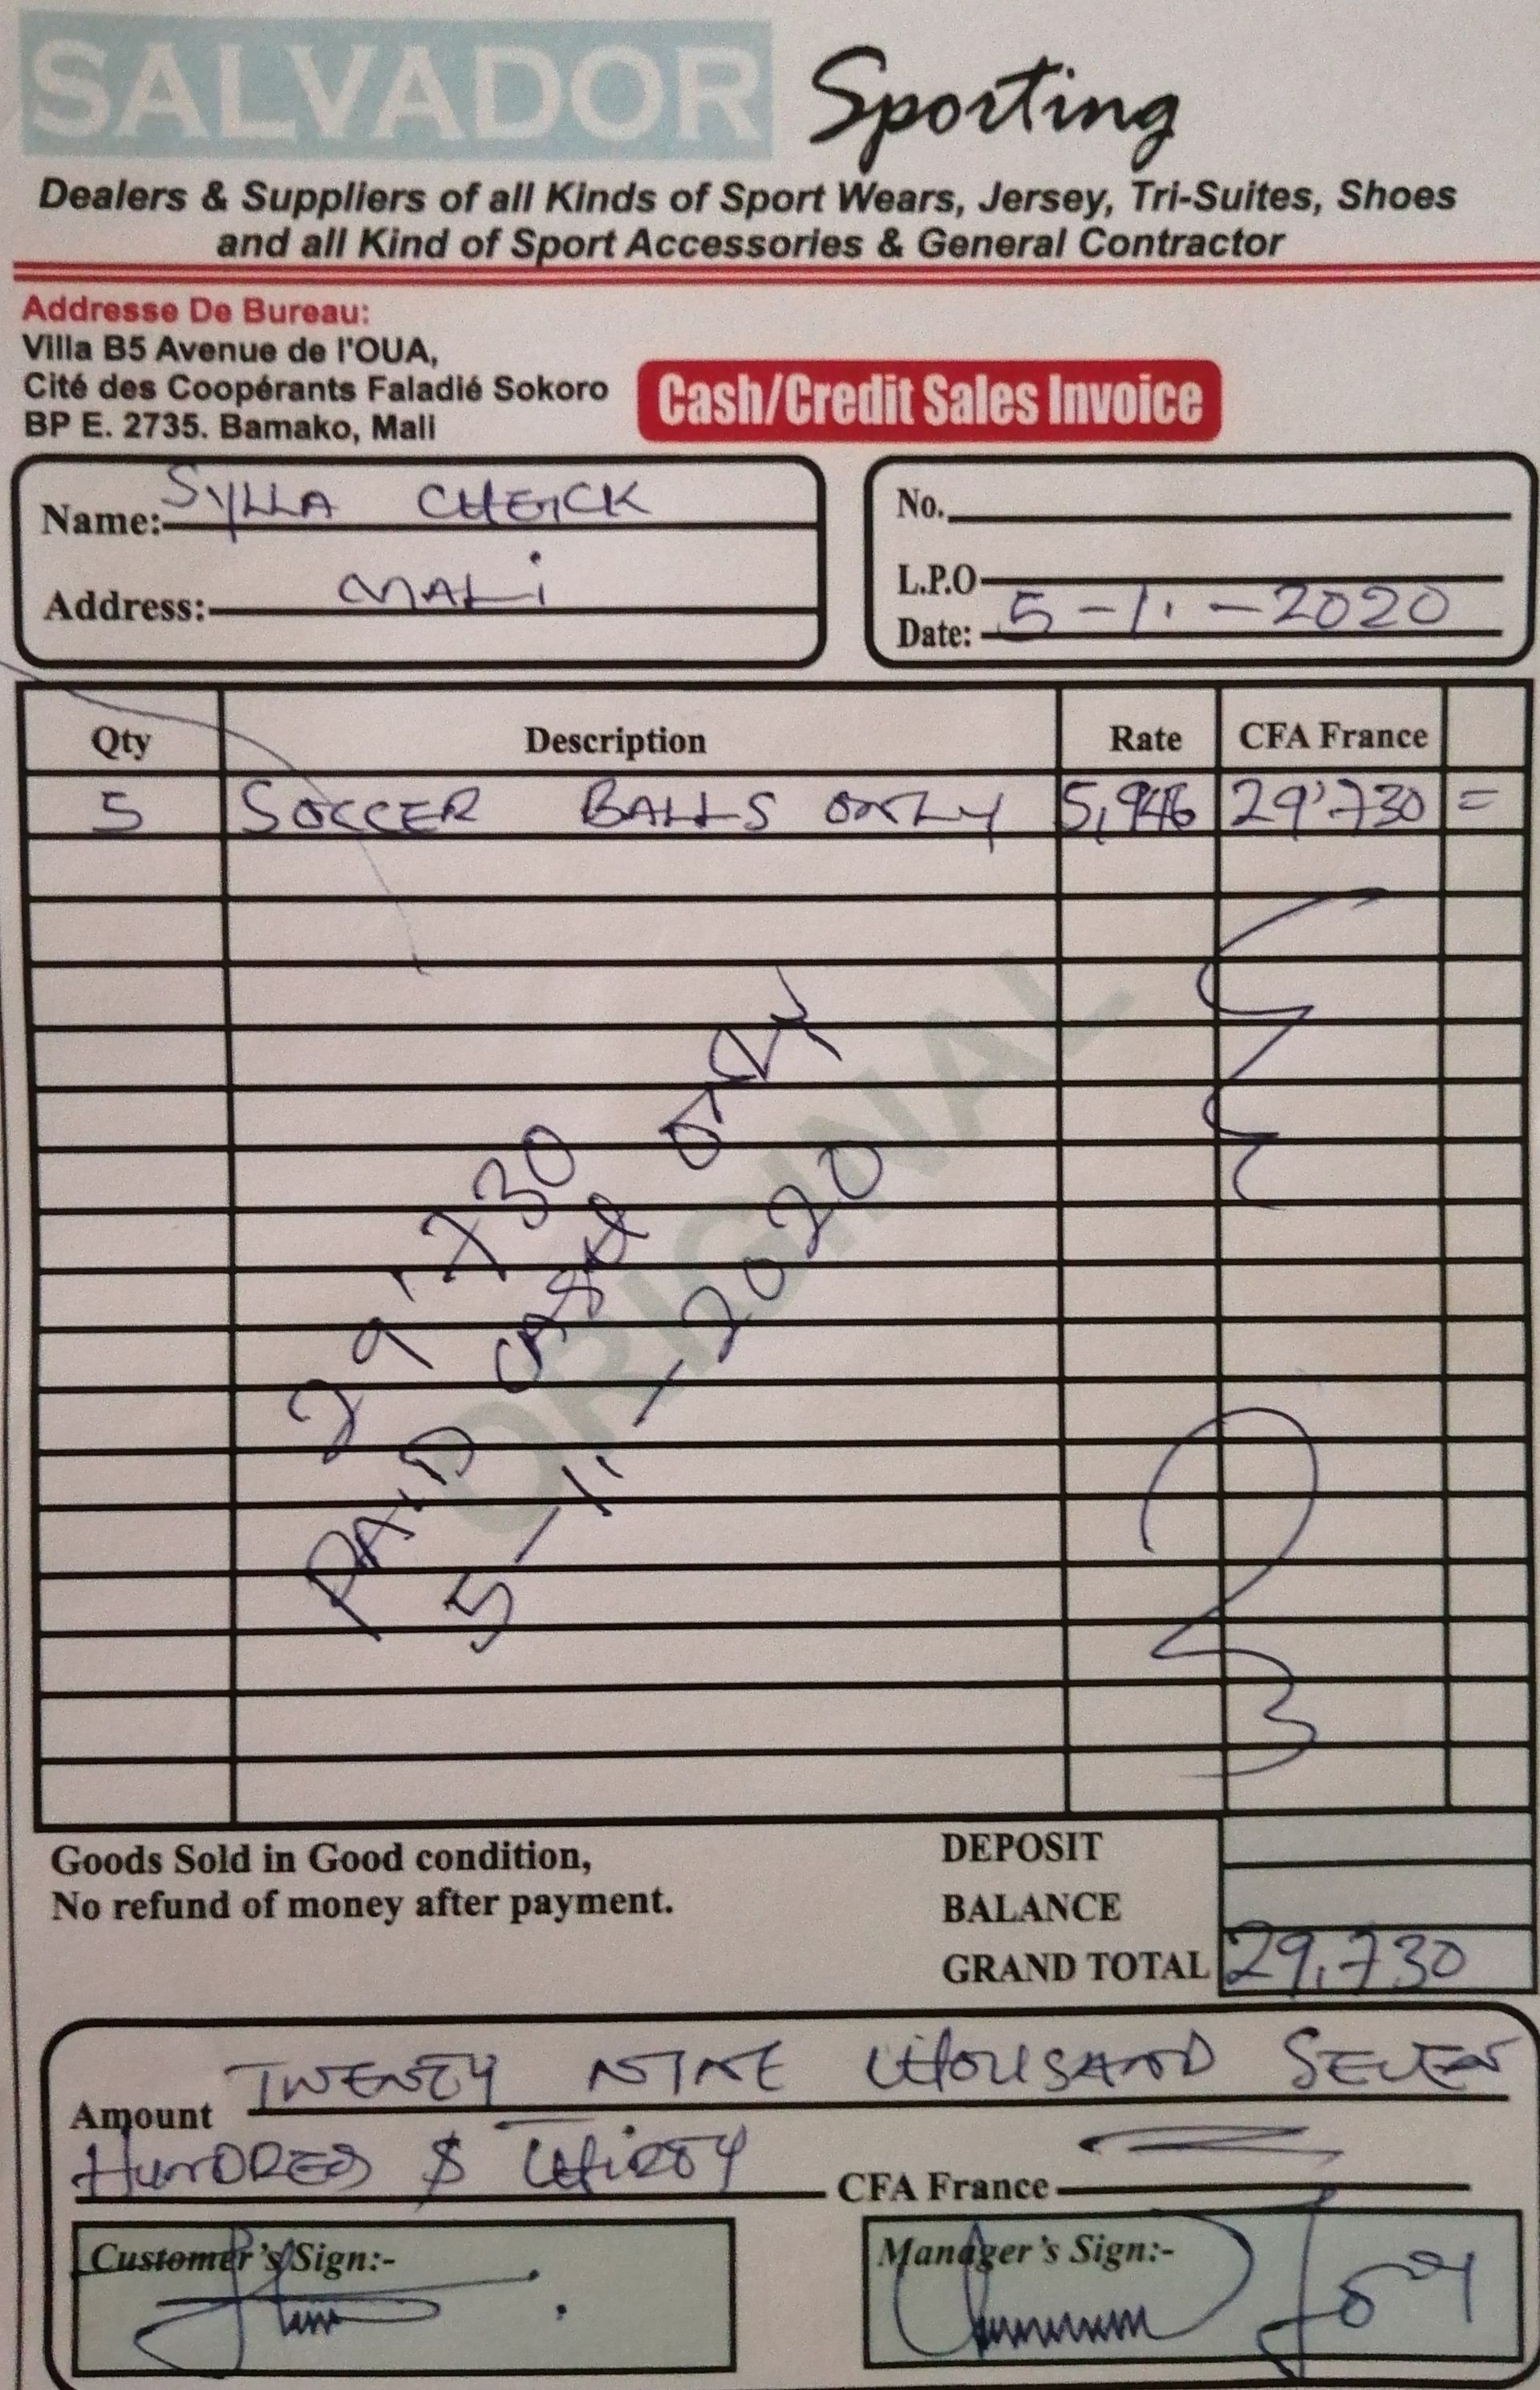 SALVADOR Sporting
Dealers & Suppliers of all Kinds of Sport Wears, Jersey, Tri-Suites, Shoes
and all Kind of Sport Accessories & General Contractor
Addresse De Bureau:
Villa B5 Avenue de l'OUA,
Cité des Coopérants Faladié Sokoro
BP E. 2735. Bamako, Mali
Cash/Credit Sales Invoice
Name: SYLLA CHEICK
Address: MALi
No.
L.P.O
Date: 5-11-2020
Qty Description Rate CFA France
5 SOCCER BALLS ONLY 5,946 29'730 =
ORIGINAL
29'730
PAiD CASH ONLY
5-11-2020
Goods Sold in Good condition,
No refund of money after payment.
DEPOSIT
BALANCE
GRAND TOTAL 29,730
Amount TWENTY NINE tHOUSAND SEVEN
HUNDRED $ tHiRTY CFA France
Customer's Sign:-
Manager's Sign:-